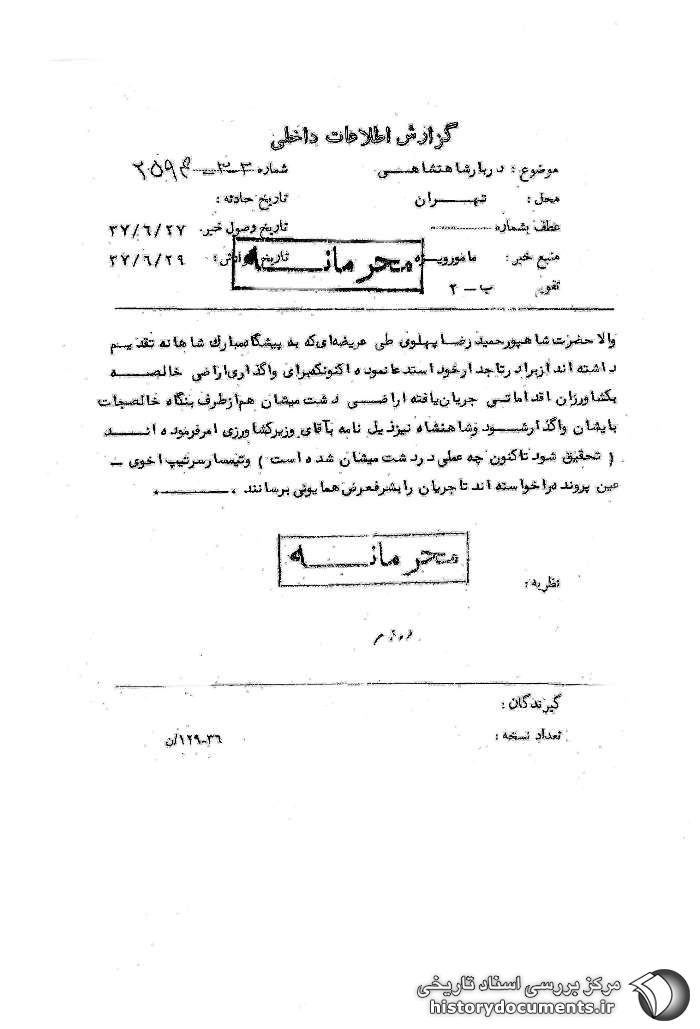 گزارش اطلاعات داخلی
موضوع : دربار شاهنشاهــی شماره
محل : تهـــران تاریخ حادثه :
عطف بشماره تاریخ وصول خبر. ۳۷/۶/۲۷
منبع خبر : مامورویــژه تاریخ : ۳۷/۶/۲۹
محرمانــه
تقویم ب – ۲
والاحضرت شاهپورحمید رضا پهلوی طی عریضه‌ای که به پیشگاه مبارک شاهانه تقدیــم
داشته اند ازبرادرتاجدارخود استدعا نموده اکنون‌که‌برای واگذاری اراضی خالصــه
بکشاورزان اقداماتی جریان یافته اراضــی دشت میشان هم‌ازطرف بنگاه خالصجات
بایشان واگذارشــود وشاهنشاه نیزذیل نامه بآقای وزیرکشاورزی امرفرموده انــد
( تحقیق شود تاکنون چه عملی در دشت میشان شده است ) وتیمسارسرتیپ اخوی –
عین پرونده را خواسته اند تا جریان را بشرفعرض همایونی برسانند .
محرمانــه
نظریه :
گیرندگان :
تعداد نسخه : ۳۶-۱۲۹/ن
مرکز بررسی اسناد تاریخی
historydocuments.ir